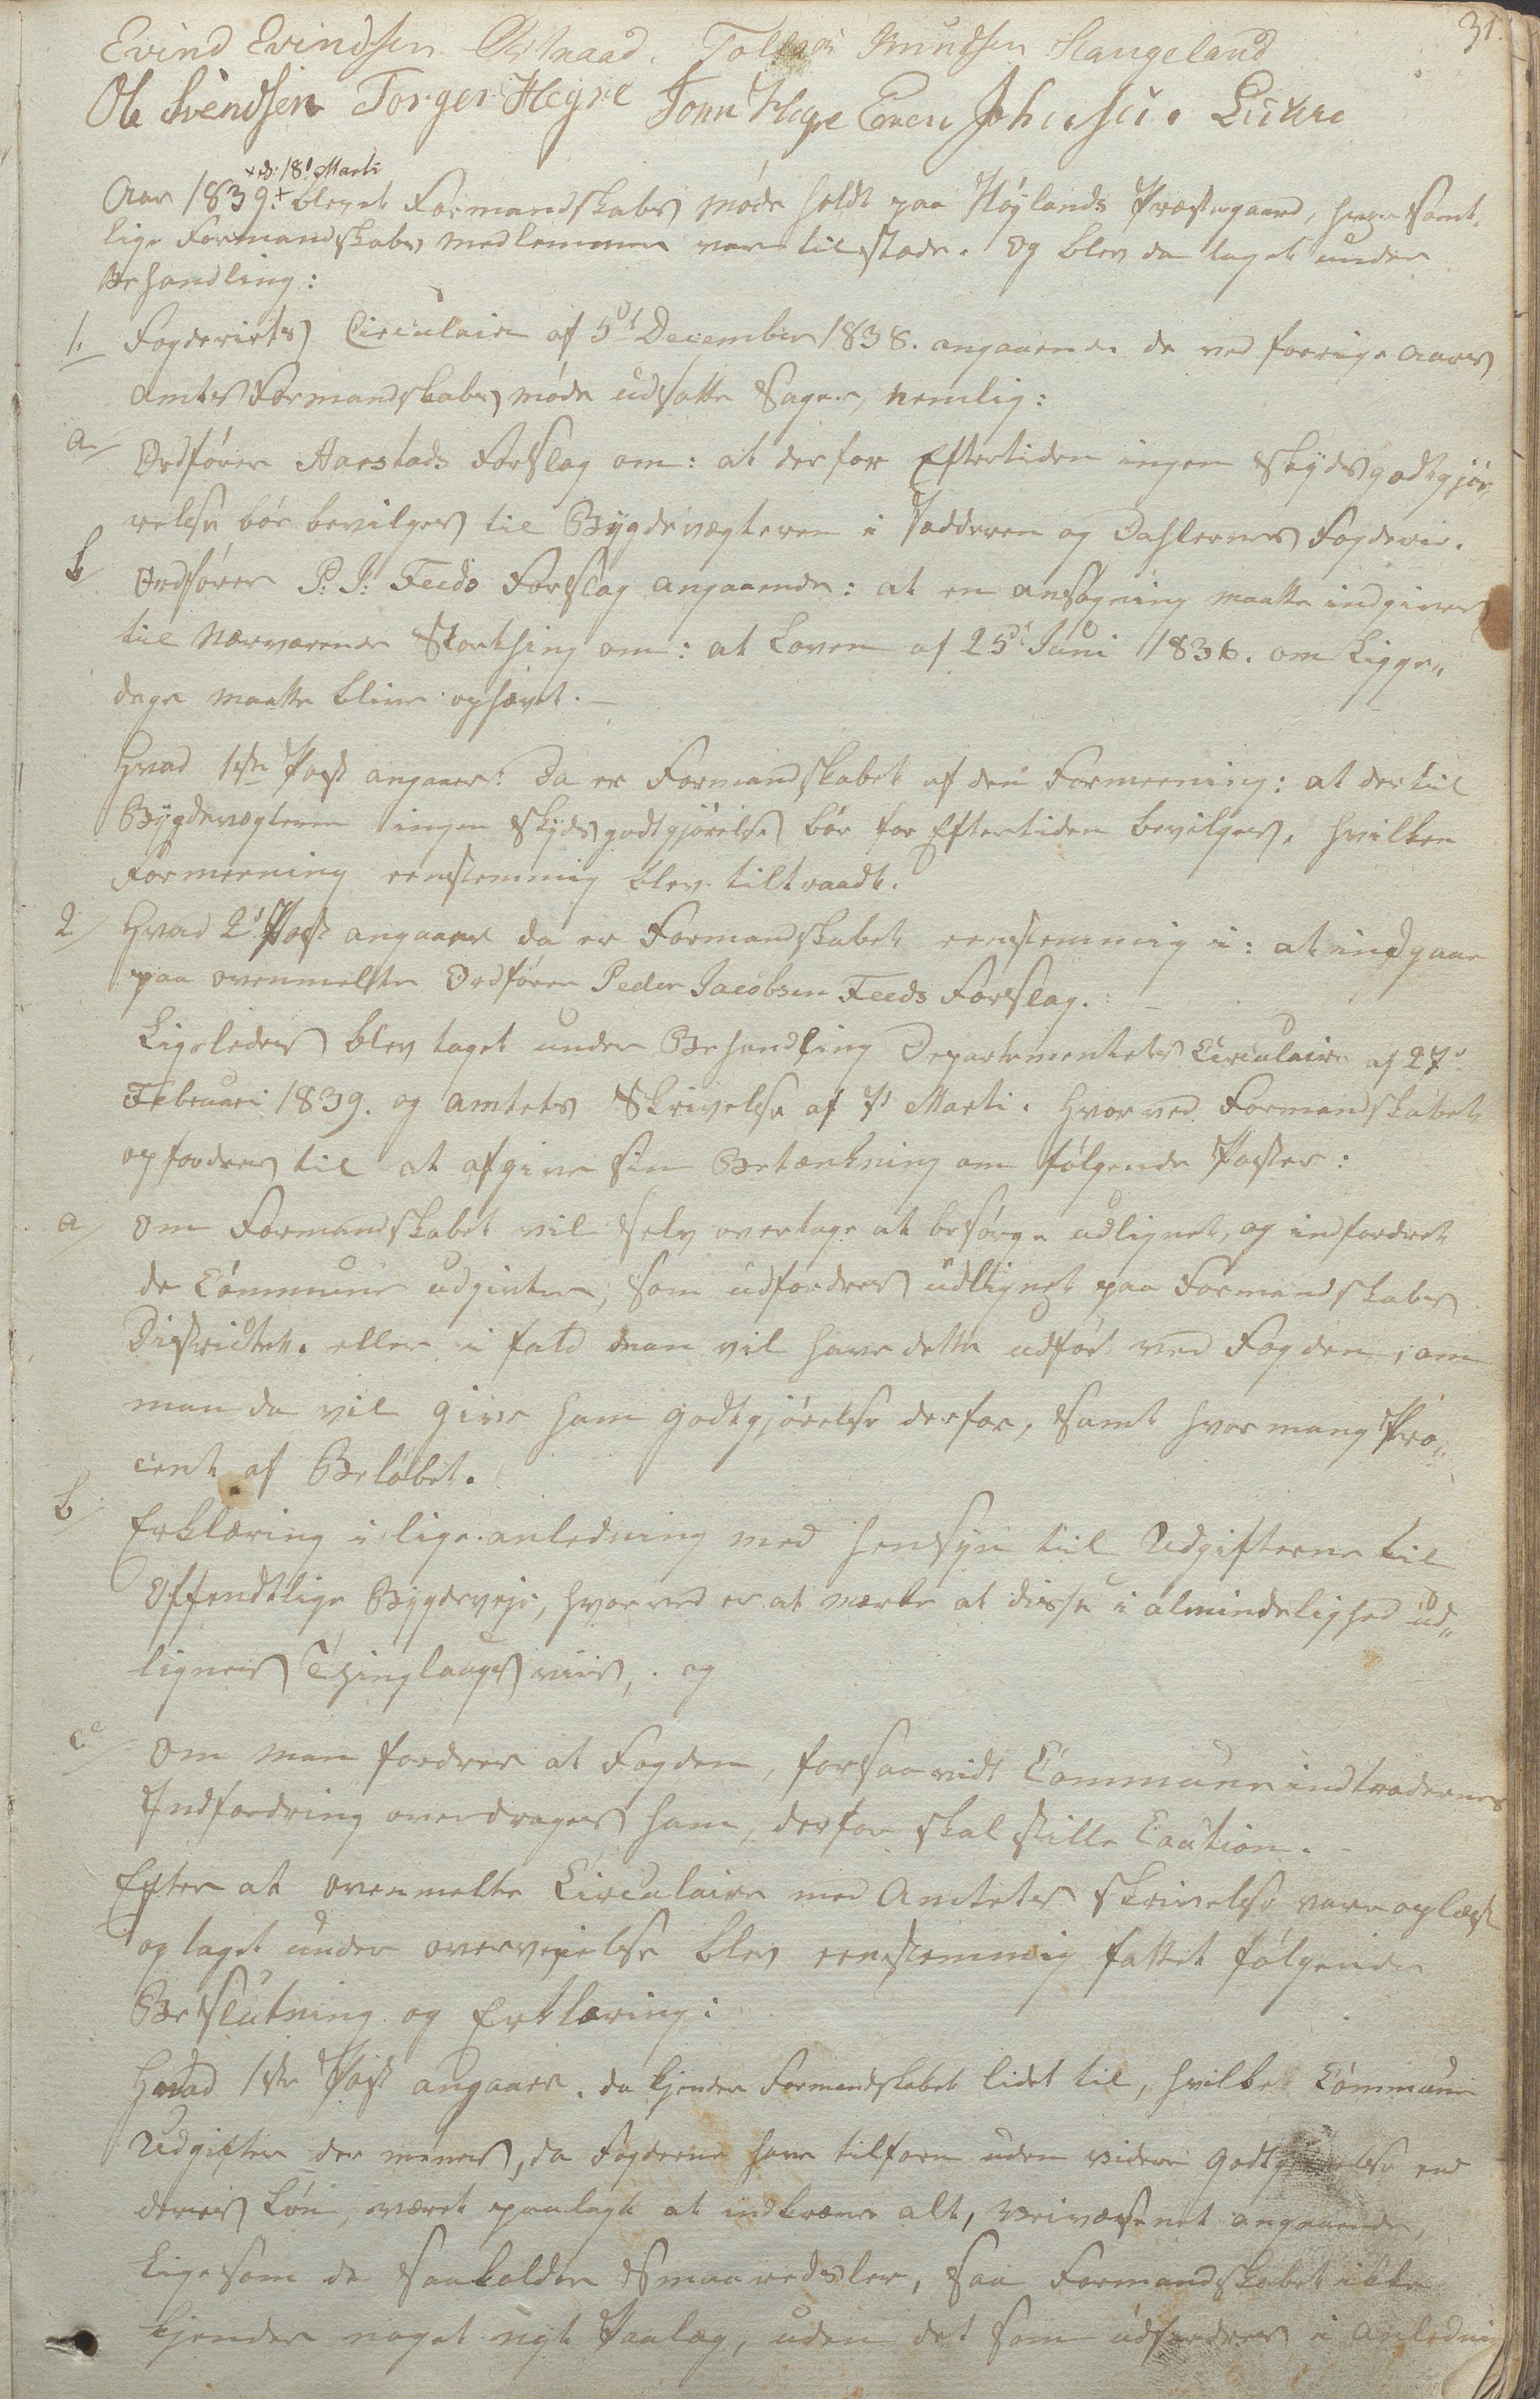 31.
Evind Evindsen Østraad. Tollag Knudsen Haugeland
Ole Svendsen Torger Hegre Tonn Hegre Even Johnsen Lukre
+ d: 18' Marti
Aar 1839.+ blev et Formandskabs møde holdt paa Høylands Præstegaard, hvor samt-
lige Formandskabs medlemmer var tilstæde. Og blev da taget under
Behandling:
1. Fogderiets Circulaire af 5d December 1838. angaaende de ved forrige Aars
Amts Formandskabs møde udsatte Sager, nemlig:
a/ Ordfører Aarstads Forslag om: at der for Eftertiden ingen Skydsgodtgjør„
relse bør bevilges til Bygdevægteren i Jædderen og Dahlernes Fogderie.
b/ Ordfører P. J. Feeds Forslag angaaende: at en ansøgning maatte indgives
til nærværende Storthing om: at Loven af 25d Juni 1836. om Ligge„
dage maatte blive ophævet. —
Hvad 1ste Post angaaer: Da er Formandskabet af den Formeening: at der til
Bygdevægteren ingen Skydsgodtgjørelse bør for Eftertiden bevilges, hvilken
Formeening eenstemmig blev tiltraadt.
2/ Hvad 2d Post angaaer da er Formandskabet eenstemmig i: at indgaae
paa ovenmelte Ordfører Peder Jacobsen Feeds Forslag. —
Ligeledes blev taget under Behandling Departementets Circulaire af 27d
Februari 1839. og Amtets Skrivelse af 7d Marti. hvorved Formandskabet
opfordres til at afgive sin Betænkning om følgende Poster:
a/ Om Formandskabet vil selv overtage at besørge udlignet, og indfordret
de Commune udgivter, som udfordres udlignet paa Formandskabs
Districtet. eller i fald man vil have dette udført ved Fogden, om
man da vil give ham godtgjørelse derfor, samt hvor mang Pro„
cent af Beløbet.
b/ Erklæring i lige anledning med Hensyn til Udgifterne til
Offendtlige Bygdeveje, hvorved er at mærke at disse i almindelighed ud„
lignes Thinglaugsviis, . og
c/ Om man fordrer at Fogden, forsaavidt Commune indtrædernes
Indfordring overdrages ham, derfor skal stille Caution. -
Efter at ovenmelte Circulaire med Amtets skrivelse vare oplæst
og taget under overveielse blev eenstemmig fattet følgende
Beslutning og Erklæring:
Hvad 1ste Post angaaer. da kjender Formandskabet lidet til, hvilke Commune
Udgifter der menes, da Fogderne have tilforn uden videre Godtgjørelse end
deres Løn, været paalagt at indkræve alt, Veivæsenet angaaende,
Lige som de saakaldte Smaaredsler, saa Formandskabet ikke
kjender noget nyt Paalæg, uden det som udfordres i Anledning